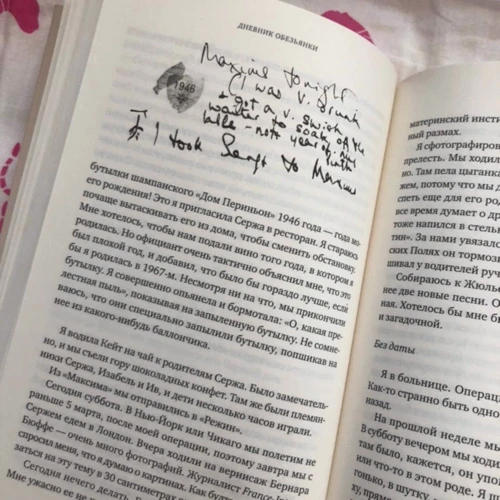 ДНЕВНИК ОБЕЗЬЯНКИ
Maxime tonight
I was v. drunk
1946
& got a v. swish
waiter to soak of the
lable - note year of my birth
I took Serge to Maxims
бутылки шампанского «Дом Периньон» 1946 года — года мо-
его рождения! Это я пригласила Сержа в ресторан. Я стараюсь
почаще вытаскивать его из дома, чтобы сменить обстановку.
Мне хотелось, чтобы нам подали вино того года, в котором я
родилась. Но официант очень тактично объяснил мне, что это
был плохой год, и добавил, что было бы гораздо лучше, если
бы я родилась в 1967-м. Несмотря ни на что, мы прикончили
бутылку. Я совершенно опьянела и бормотала: «О, какая пре-
лестная пыль», показывая на запыленную бутылку. Не сомне-
ваюсь, что они специально запылили бутылку, попшикав на
нее из какого-нибудь баллончика.
Я водила Кейт на чай к родителям Сержа. Было замечатель-
но, и мы съели гору шоколадных конфет. Там же были племян-
ники Сержа, Изабель и Ив, и дети несколько часов играли.
Из «Максима» мы отправились в «Режин».
Сегодня суббота. В Нью-Йорк или Чикаго мы полетим не
раньше 5 марта, после моей операции, поэтому завтра мы с
Сержем едем в Лондон. Вчера ходили на вернисаж Бернара
Бюффе — очень много фотографий. Журналист France-
спросил меня, что я думаю о картинах. Как будто
заться на эту тему в 30 сантиметрах
Сегодня нечего делать.
Мне ужасно не
материнский инсти
ный размах.
Я сфотографиров
прелесть. Мы ходил
но. Там пела цыганка
жем, потому что мы
спеть еще для его род
все время думает о др
тоже напился в стельк
За нами увязалс
тин». За нами увязался
Полях он тормози
шивал у водителей руч
Собираюсь к Жюльe
две новые песни. О
ная. Хотелось бы мне бы
и загадочной.
Без даты
Я в больнице. Операц
Как-то странно быть одно
назад.
На прошлой неделе мы
В субботу вечером мы ходи
там было, кажется, он упи
или что-то в этом роде. Я
ною, в шутку,